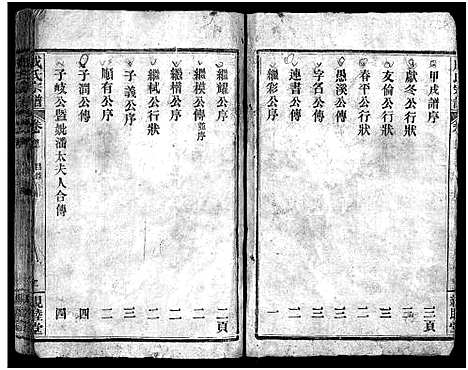 甲戌譜序 三頁
獻冬公行狀 三
友倫公行狀 二
春平公行狀 二
愚溪公傳 一
字名公傳 一
連書公傳 一
繼彩公序 一
繼耀公序 二頁
繼模公傳並序 二
繼楷公序 二
繼栻公行狀 二
子義公序 三
順有公序 二
子潤公傳 四
子岐公暨姚潘太夫人合傳 四
氏宗譜 卷
親睦堂